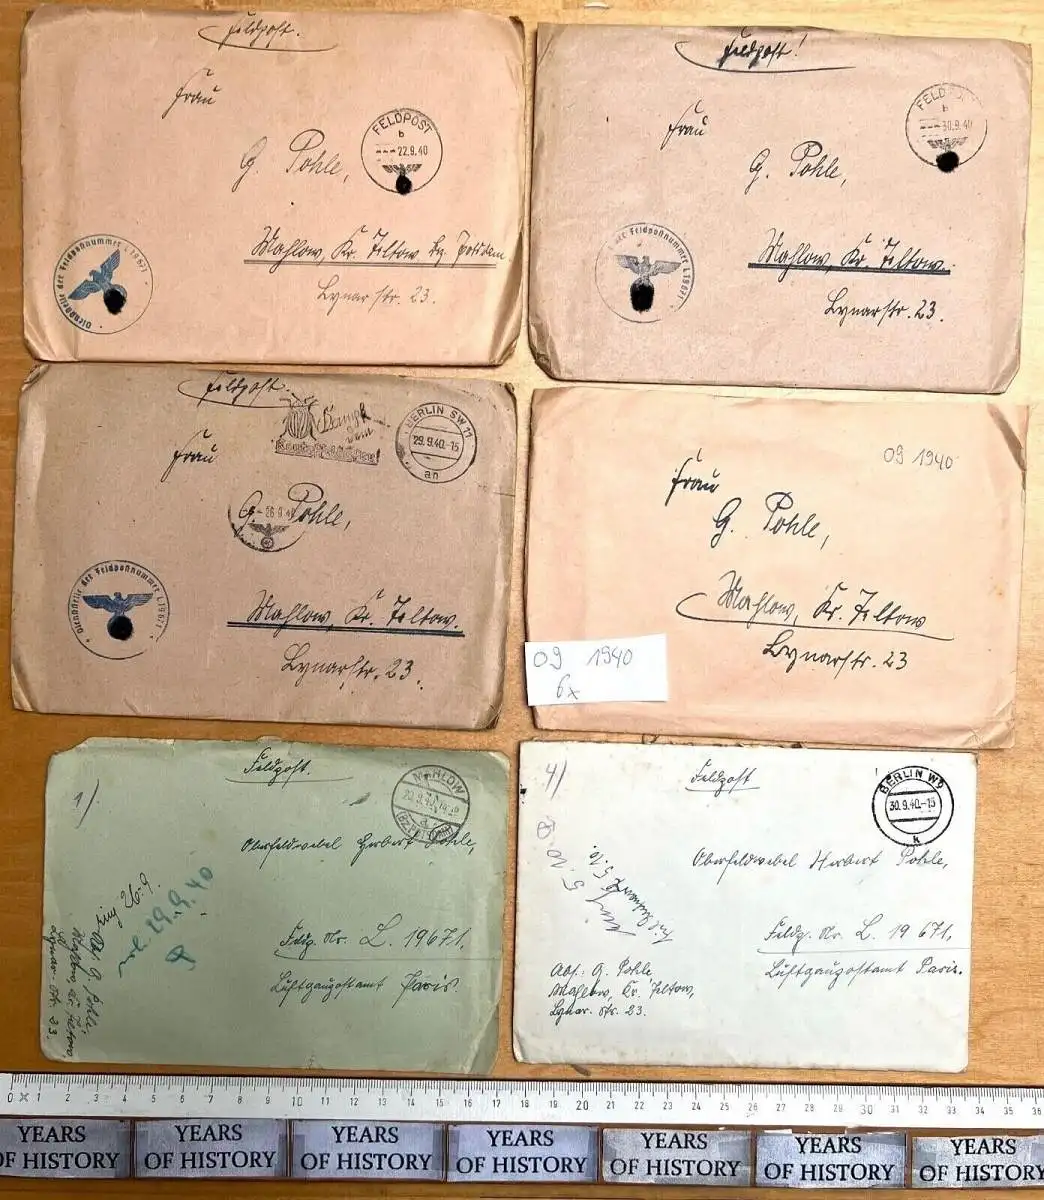 Feldpost.
Frau
FELDPOST
b
22.9.40
G. Pohle,
Dienststelle der Feldpostnummer L 19671
Mahlow, Kr. Teltow Bz. Potsdam
Lynarstr. 23.
Feldpost!
Frau
b
30.9.40
G. Pohle,
der Feldpostnummer L 19671
Mahlow, Kr. Teltow.
Lynarstr. 23.
Feldpost.
Kampf
dem
Kartoffelkäfer!
BERLIN SW 11
29.9.40.-15
an
Frau
26.9.40
G. Pohle,
Dienststelle der Feldpostnummer L 19671
Mahlow, Kr. Teltow.
Lynarstr. 23.
09 1940
Frau
G. Pohle,
Mahlow, Kr. Teltow
Lynarstr. 23
09 1940
6x
Feldpost.
1)
MAHLOW
Oberfeldwebel Herbert Pohle,
26.9.
29.9.40
Feldp. Nr. L. 19671,
Luftgaupostamt Paris.
Abs. G. Pohle,
Mahlow, Kr. Teltow,
Lynar-Str. 23.
4)
Feldpost
BERLIN W9
30.9.40.-15
k
Oberfeldwebel Herbert Pohle,
5.10
5.10.
Feldp. Nr. L. 19 671,
Luftgaupostamt Paris.
Abs.: G. Pohle,
Mahlow, Kr. Teltow,
Lynar-Str. 23.
0 1 2 3 4 5 6 7 8 9 10 11 12 13 14 15 16 17 18 19 20 21 22 23 24 25 26 27 28 29 30 31 32 33 34 35 36
YEARS
OF HISTORY
YEARS
OF HISTORY
YEARS
OF HISTORY
YEARS
OF HISTORY
YEARS
OF HISTORY
YEARS
OF HISTORY
YEARS
OF HISTORY